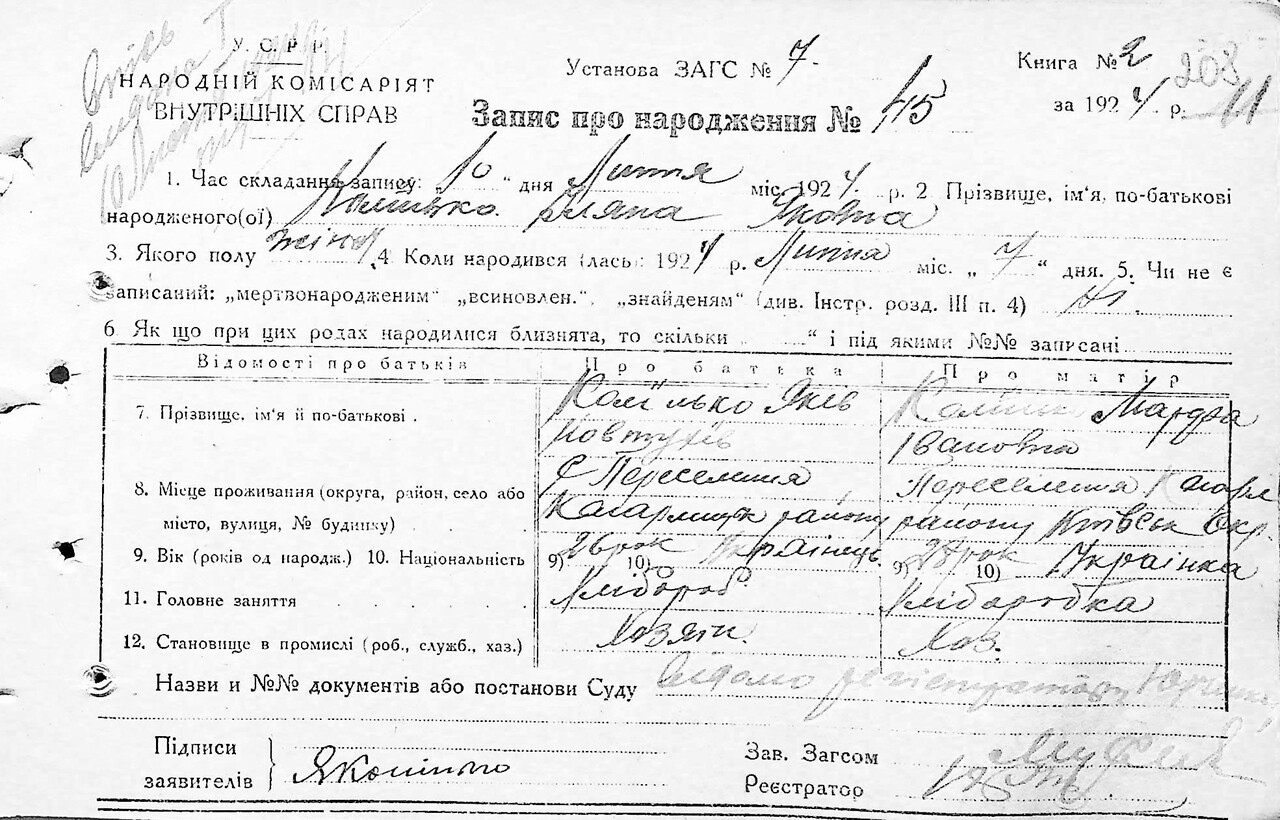 У. С. Р. Р.
НАРОДНІЙ КОМІСАРІЯТ
ВНУТРІШНІХ СПРАВ
Установа ЗАГС № 7
Книга № 2
208
Запис про народження № 45
за 1924 р. 11
1. Час складання запису: „10“ дня Липня міс. 1924 р. 2. Прізвище, ім'я, по-батькові
народженого(ої) Уляна Яковна
3. Якого полу жіноч 4. Коли народився (лась) 1924 р. Липня міс. „7“ дня. 5. Чи не є
записаний: „мертвонародженим“ „всиновлен.“, „знайденям“ (див. Інстр. розд. III п. 4) Ні.
6. Як що при цих родах народилися близнята, то скільки „ “ і під якими №№ записані
Відомості про батьків Про батька Про матір
7. Прізвище, ім'я й по-батькові . Яків Марфа
Івановна
8. Місце проживання (округа, район, село або с Переселення Переселення Кагарл
місто, вулиця, № будинку) Кагарлицьк району району Київськ Окр.
9. Вік (років од народж.) 10. Національність 9) 26 рок 10) Українець 9) рок 10) Українка
11. Головне заняття . . . . Хлібороб Хліборобка
12. Становище в промислі (роб., служб., хаз.) Хозяїн Хоз.
Назви и №№ документів або постанови Суду
Підписи
заявителів
Зав. Загсом
Реєстратор